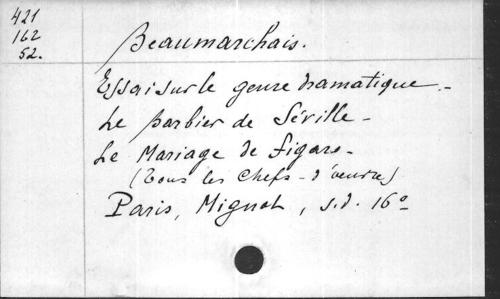 421
162
52.
Beaumarchais.
Essai sur le genre dramatique. -
Le Barbier de Séville -
Le Mariage de Figaro -
(Tous les Chefs-d'œuvre)
Paris, Mignot, s.d. 16°